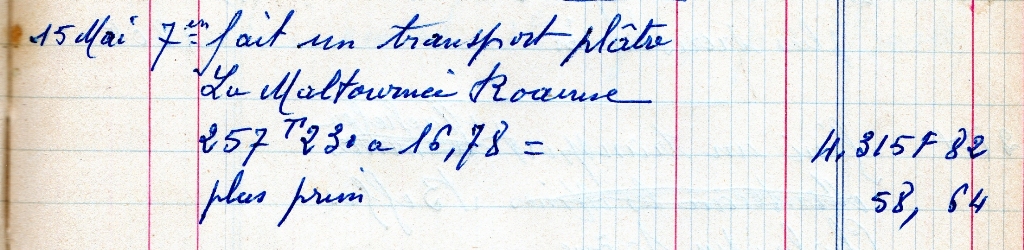 15 Mai 7en fait un transport plâtre
La Maltournée Roanne
257T230 a 16,78 = 4.315F 82
plus prim 58, 64